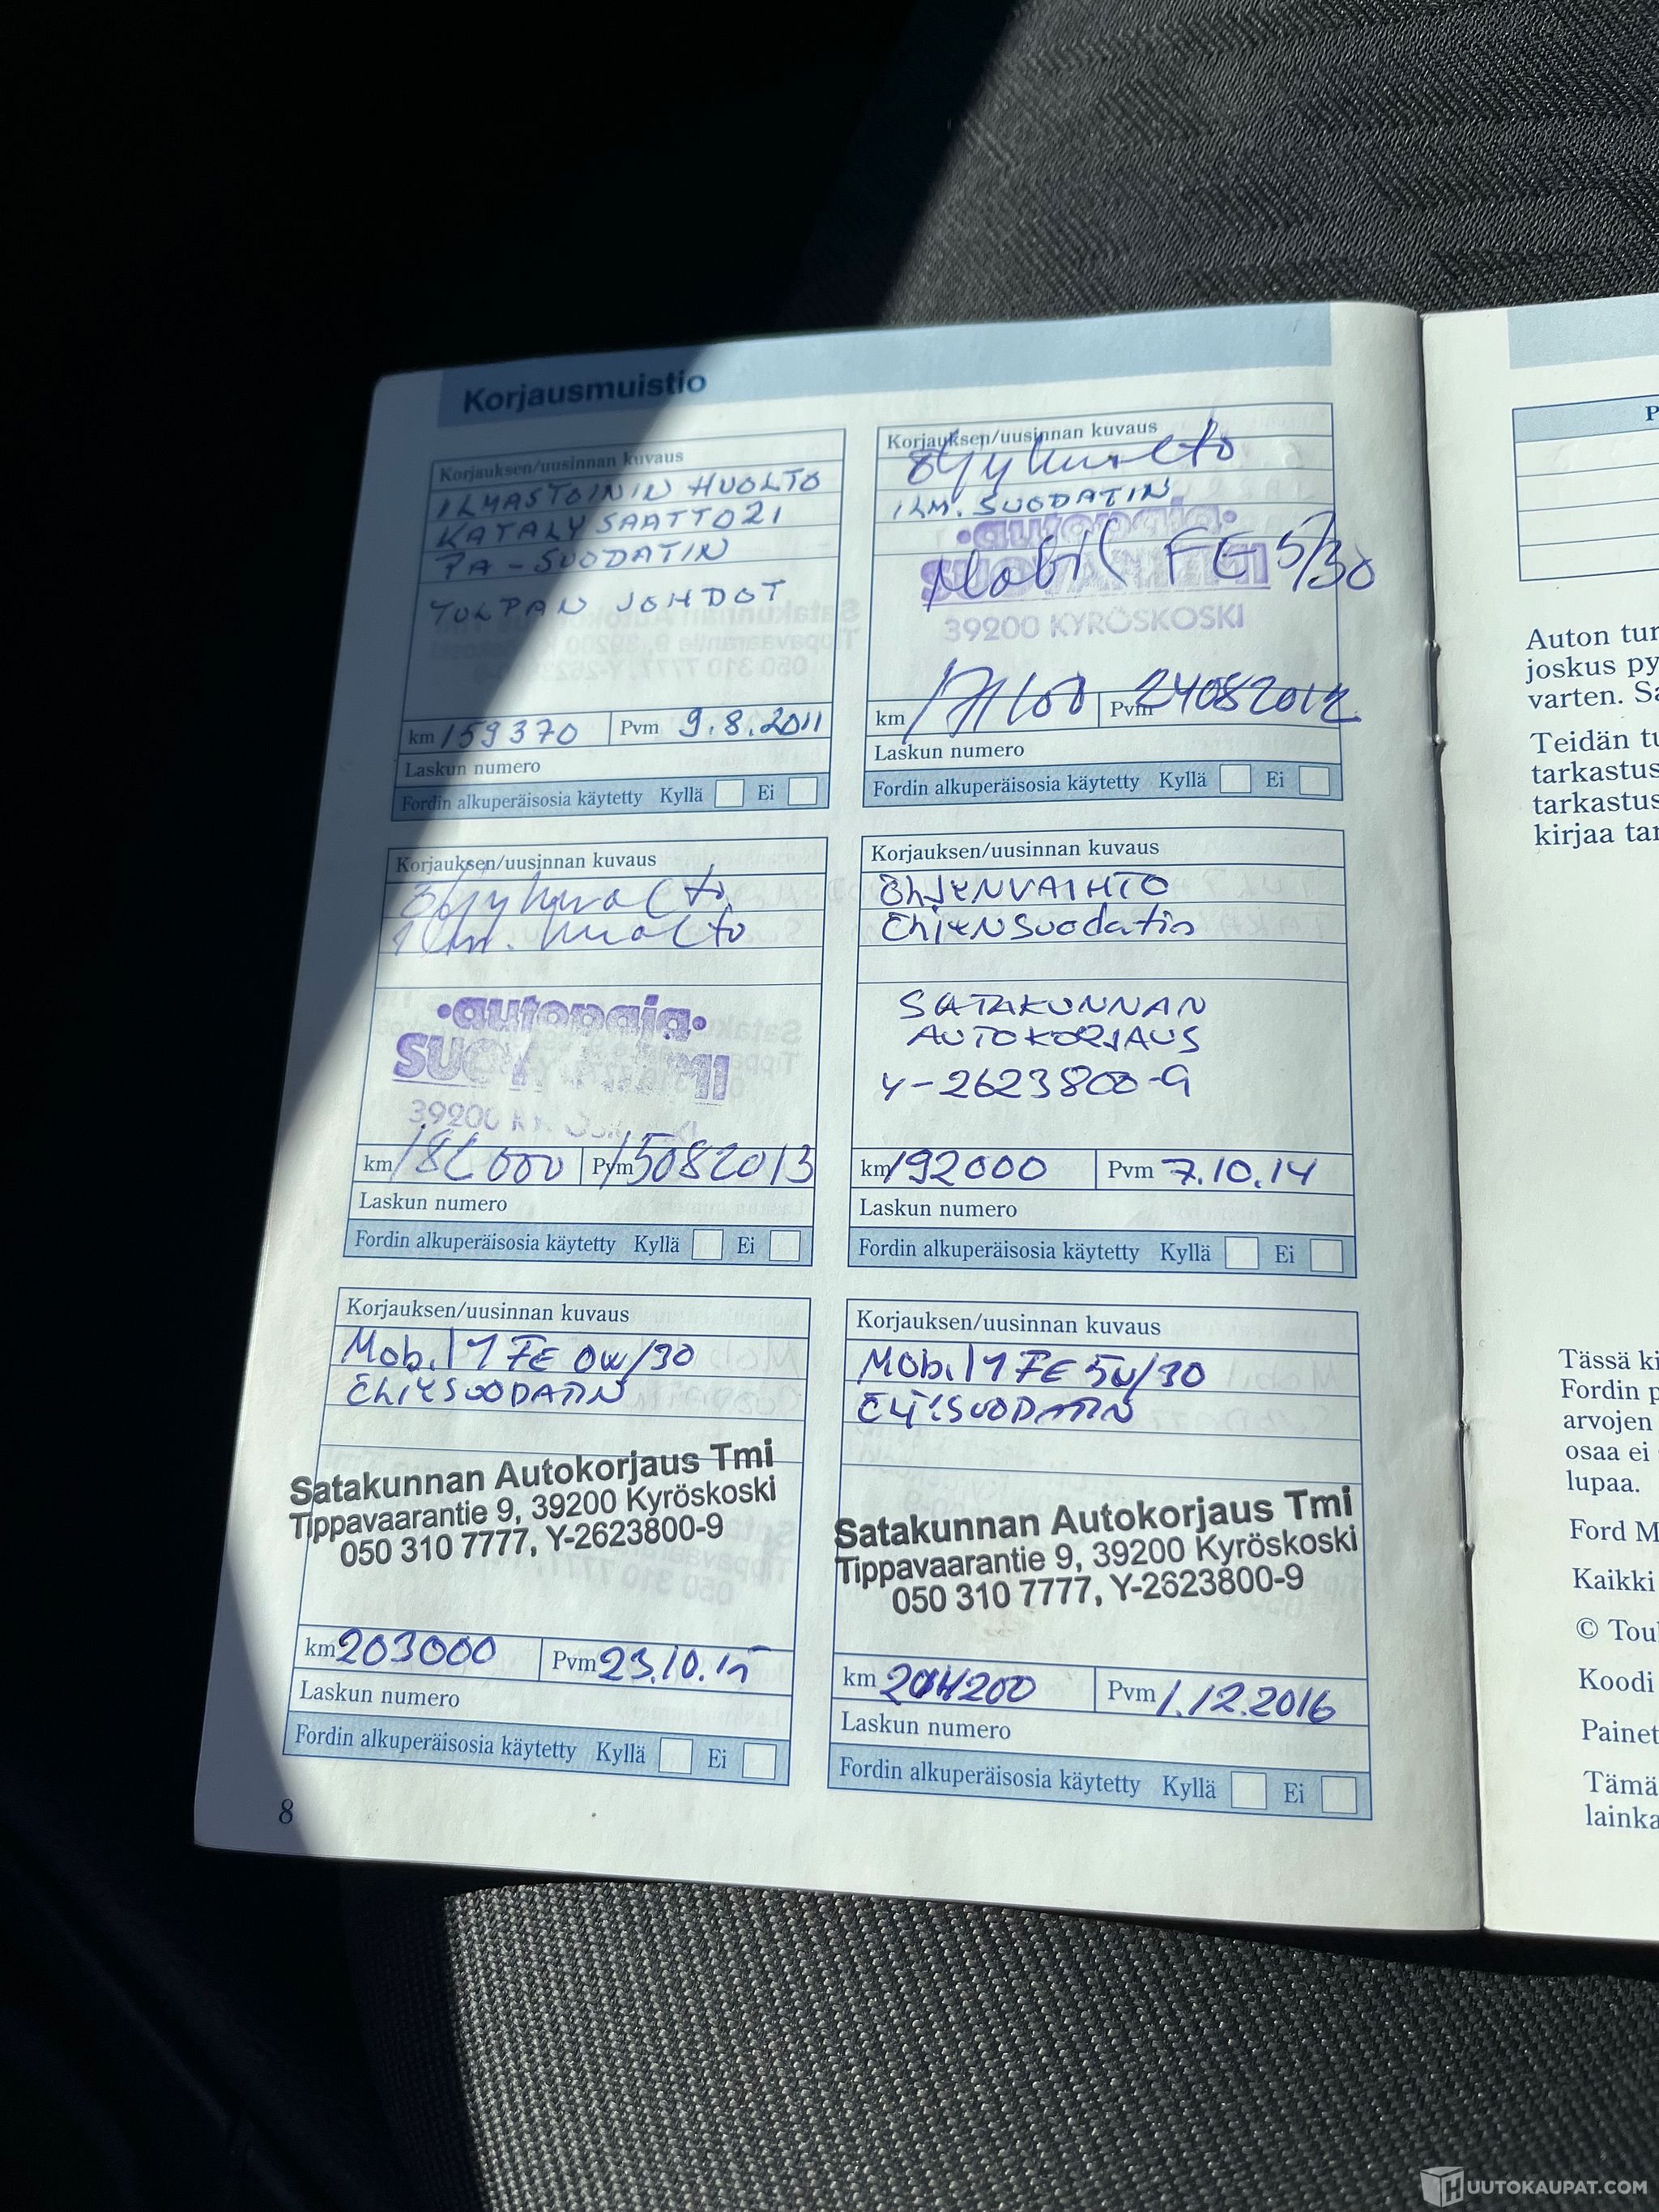 Korjausmuistio
Korjauksen/uusinnan kuvaus
ILMASTOININ HUOLTO
KATALYSAATTORI
PA-SUODATIN
TULPAN JOHDOT
km 159370 Pvm 9.8.2011
Laskun numero
Fordin alkuperäisosia käytetty Kyllä Ei
Korjauksen/uusinnan kuvaus
Öljyhuolto
ILM. SUODATIN
•autopaja•
Mobil FE 5/30
39200 KYRÖSKOSKI
km 171100 Pvm 24082012
Laskun numero
Fordin alkuperäisosia käytetty Kyllä Ei
Korjauksen/uusinnan kuvaus
Öljyhuolto
Ilm. huolto
•autopaja•
39200
km Pvm 15082013
Laskun numero
Fordin alkuperäisosia käytetty Kyllä Ei
Korjauksen/uusinnan kuvaus
ÖLJYNVAIHTO
ÖljYNSuodatin
SATAKUNNAN
AUTOKORJAUS
Y-2623800-9
km 192000 Pvm 7.10.14
Laskun numero
Fordin alkuperäisosia käytetty Kyllä Ei
Korjauksen/uusinnan kuvaus
Mobil 1 FE 0w/30
ÖLJYSUODATIN
Satakunnan Autokorjaus Tmi
Tippavaarantie 9, 39200 Kyröskoski
050 310 7777, Y-2623800-9
km 203000 Pvm 23.10.15
Laskun numero
Fordin alkuperäisosia käytetty Kyllä Ei
Korjauksen/uusinnan kuvaus
Mobil 1 FE 5W/30
ÖLJYSUODATIN
Satakunnan Autokorjaus Tmi
Tippavaarantie 9, 39200 Kyröskoski
050 310 7777, Y-2623800-9
km Pvm 1.12.2016
Laskun numero
Fordin alkuperäisosia käytetty Kyllä Ei
8
P
Auton tur
joskus py
varten. Sa
Teidän tu
tarkastus
tarkastus
kirjaa tar
Tässä ki
Fordin p
arvojen
osaa ei
lupaa.
Ford M
Kaikki
© Tou
Koodi
Painet
Tämä
lainka
HUUTOKAUPAT.COM